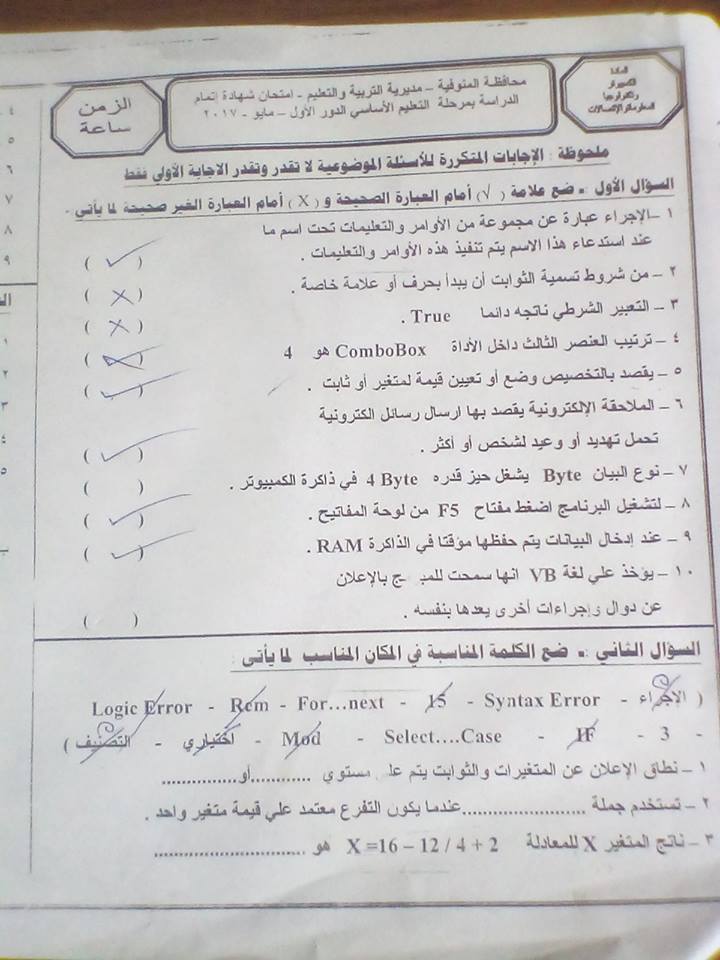 المادة
الكمبيوتر
وتكنولوجيا
المعلومات والاتصالات
محافظة المنوفية – مديرية التربية والتعليم - امتحان شهادة إتمام
الدراسة بمرحلة التعليم الأساسي الدور الأول – مايو - ٢٠١٧
الزمن
ساعة
ملحوظة : الإجابات المتكررة للأسئلة الموضوعية لا تقدر وتقدر الاجابة الأولي فقط
السؤال الأول :ـ ضع علامة ( √ ) أمام العبارة الصحيحة و ( X ) أمام العبارة الغير صحيحة لما يأتى -
١ –الإجراء عبارة عن مجموعة من الأوامر والتعليمات تحت اسم ما
عند استدعاء هذا الاسم يتم تنفيذ هذه الأوامر والتعليمات . ( ✓ )
٢ – من شروط تسمية الثوابت أن يبدأ بحرف أو علامة خاصة . ( X )
٣ – التعبير الشرطي ناتجه دائما True . ( X )
٤ – ترتيب العنصر الثالث داخل الأداة ComboBox هو 4 ( X )
٥ – يقصد بالتخصيص وضع أو تعيين قيمة لمتغير أو ثابت . ( ✓ )
٦ – الملاحقة الإلكترونية يقصد بها ارسال رسائل الكترونية
تحمل تهديد أو وعيد لشخص أو أكثر . ( ✓ )
٧ – نوع البيان Byte يشغل حيز قدره 4 Byte في ذاكرة الكمبيوتر . ( )
٨ – لتشغيل البرنامج اضغط مفتاح F5 من لوحة المفاتيح . ( ✓ )
٩ – عند إدخال البيانات يتم حفظها مؤقتا في الذاكرة RAM . ( ✓ )
١٠ – يؤخذ علي لغة VB انها سمحت للمبرمج بالإعلان
عن دوال وإجراءات أخرى يعدها بنفسه . ( )
السؤال الثاني :ـ ضع الكلمة المناسبة في المكان المناسب لما يأتى :
( الإجراء - Syntax Error - 15 - For…next - Rem - Logic Error
- 3 - IF - Select….Case - Mod - اختياري - التصنيف )
١ – نطاق الإعلان عن المتغيرات والثوابت يتم على مستوي ............أو...............
٢ – تستخدم جملة ......................عندما يكون التفرع معتمد علي قيمة متغير واحد .
٣ – ناتج المتغير X للمعادلة X =16 – 12 / 4 + 2 هو ..........................